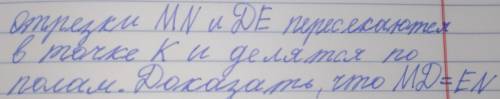 отрезки MN и DE пересекаются
в точке K и делятся по
полам. Доказать, что MD=EN